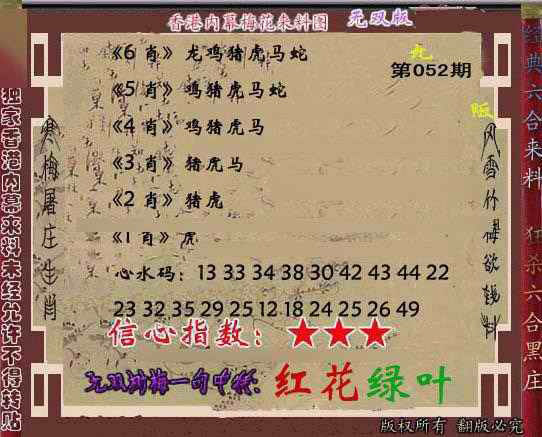 香港内幕梅花来料图 无双版
《6 肖》 龙鸡猪虎马蛇
第052期
《5 肖》 鸡猪虎马蛇
《4 肖》 鸡猪虎马
《3 肖》 猪虎马
《2 肖》 猪虎
《1 肖》 虎
心水码： 13 33 34 38 30 42 43 44 22
23 32 35 29 25 12 18 24 25 26 49
信心指数： ★★★
一句中特： 红花绿叶
版权所有 翻版必究
独家香港内幕来料未经允许不得转贴
寒梅屠庄生肖
经典六合来料 狂杀六合黑庄